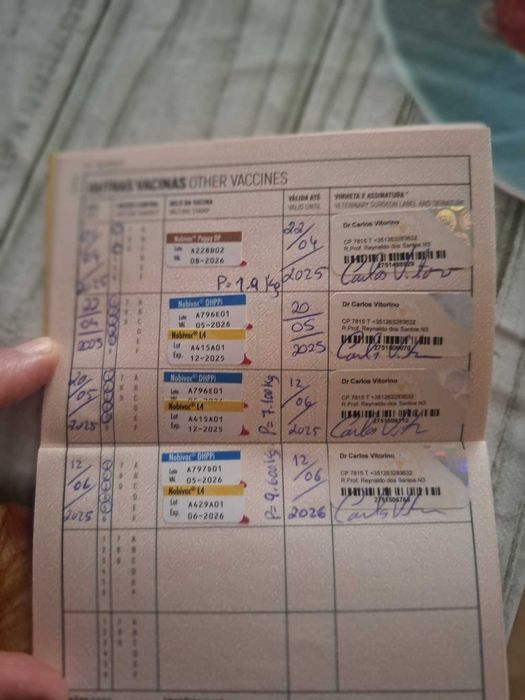 OUTRAS VACINAS OTHER VACCINES
SELO DA VACINA
VACCINE STAMP
VÁLIDA ATÉ
VALID UNTIL
VINHETA E ASSINATURA
VETERINARY SURGEON LABEL AND SIGNATURE
Nobivac Puppy DP
A228B02
08-2026
P=1.9 Kg
22/04/2025
Dr Carlos Vitorino
CP 7815 T +351263283632
R.Prof. Reynaldo dos Santos N3
Carlos Vitor
Nobivac DHPPi
A796E01
05-2026
Nobivac L4
Lot A415A01
Exp. 12-2025
20/05/2025
Dr Carlos Vitorino
CP 7815 T +351263283632
R.Prof. Reynaldo dos Santos N3
20/05/2025
Nobivac DHPPi
A796E01
Nobivac L4
Lot A415A01
Exp. 12-2025
P=7.100kg
12/06/2025
Dr Carlos Vitorino
CP 7815 T +351263283632
R.Prof. Reynaldo dos Santos N3
12/06/2025
Nobivac DHPPi
A797B01
05-2026
Nobivac L4
Lot A429A01
Exp. 06-2026
P=9.600kg
12/06/2026
Dr Carlos Vitorino
CP 7815 T +351263283632
R.Prof. Reynaldo dos Santos N3